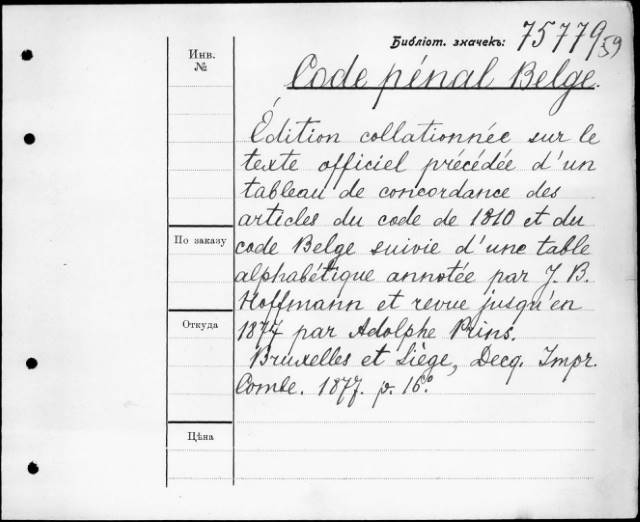 Библіот. значекъ: 75779/59
Инв.
№
Code pénal Belge.
Édition collationnée sur le
texte officiel précédée d'un
tableau de concordance des
articles du code de 1810 et du
По заказу
code Belge suivie d'une table
alphabétique annotée par J. B.
Hoffmann et revue jusqu'en
Откуда
1877 par Adolphe Prins.
Bruxelles et Liège, Decq. Impr.
Combe. 1877. p. 16°
Цѣна